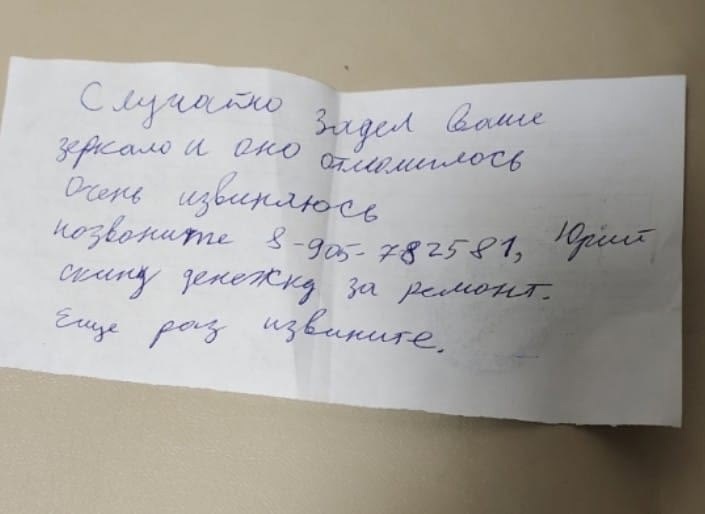 Случайно задел Ваше
зеркало и оно отломилось
Очень извиняюсь
позвоните 8-905-782581, Юрий
скину денежку за ремонт.
Еще раз извините.